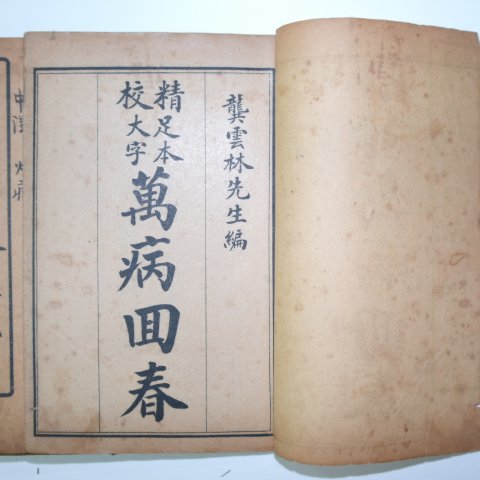 龔雲林先生編
精校大字足本
萬病回春